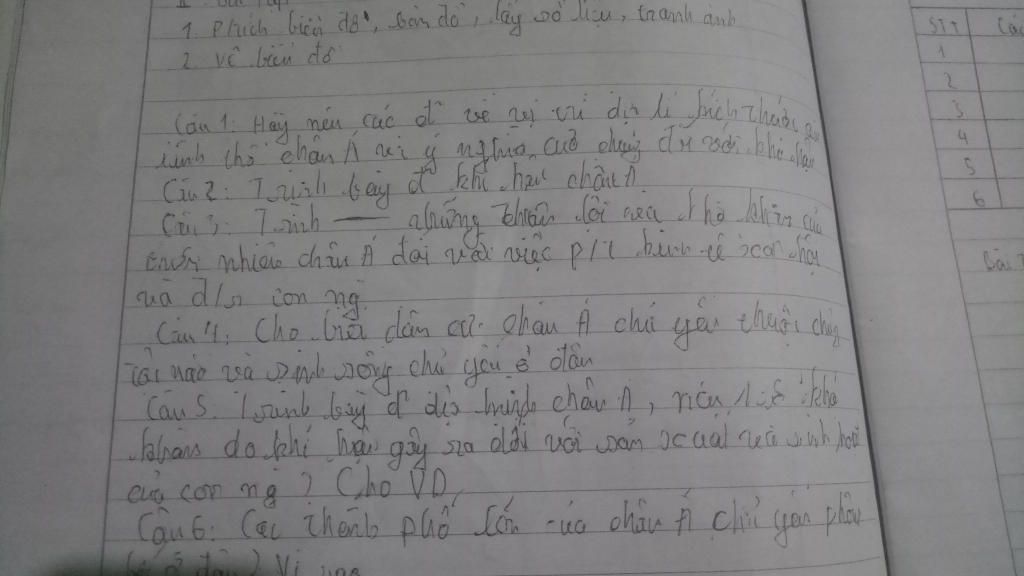 1. Phích biểu đồ, bản đồ, lấy số liệu, tranh ảnh
2. Vẽ biểu đồ
Câu 1: Hãy nêu các đ² về vị trí địa lí, kích thước
lãnh thổ châu Á và ý nghĩa của chúng đối với khí hậu
Câu 2: Trình bày đ² khí hậu châu Á
Câu 3: Trình — những thuận lợi và khó khăn của
nhiên châu Á đối với việc p/t kinh tế xã hội
và đ/s con ng
Câu 4: Cho biết dân cư châu Á chủ yếu thuộc chủng
tộc nào và sinh sống chủ yếu ở đâu
Câu 5. Trình bày đ² địa hình châu Á, nêu 1 số khó
khăn do khí hậu gây ra đối với sản xuất và sinh hoạt
của con ng? Cho VD
Câu 6: Các thành phố lớn của châu Á chủ yếu phân
ở đâu? Vì
STT Các
1
2
3
4
5
6
Bài